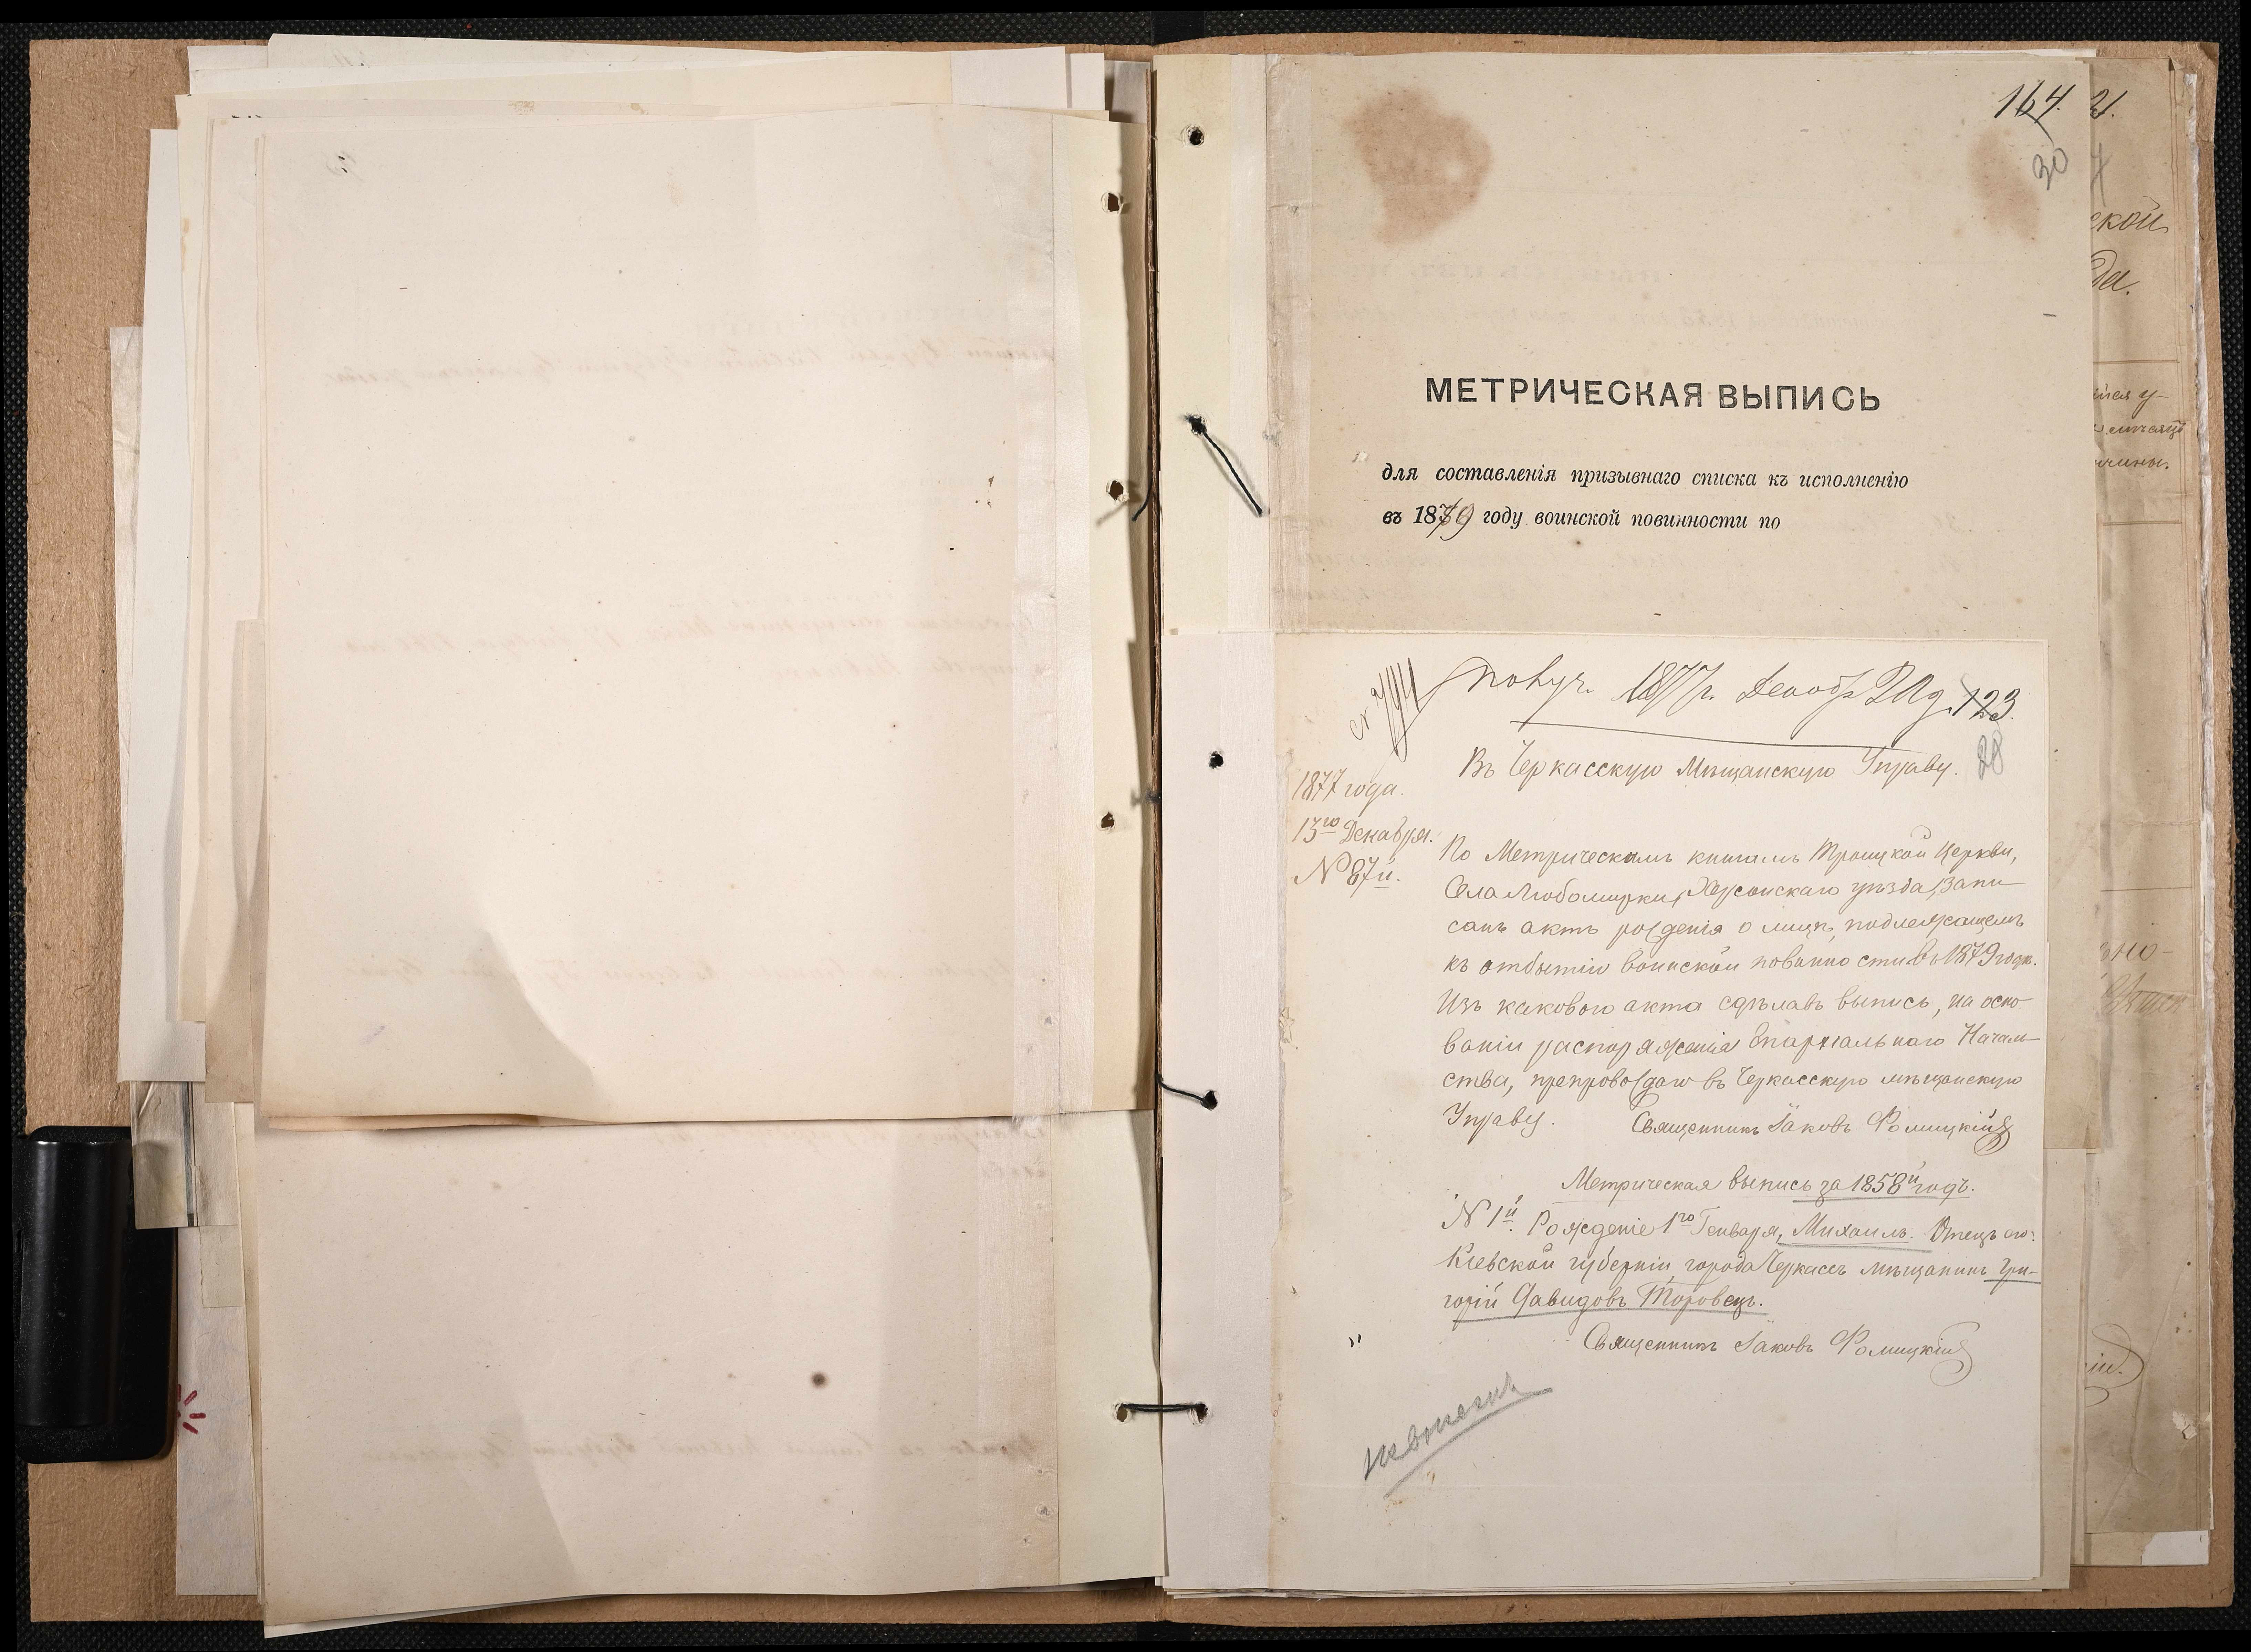 164.
30
МЕТРИЧЕСКАЯ ВЫПИСЬ
для составленія призывнаго списка къ исполненію
въ 1879 году воинской повинности по
№ 794
Получ. 1877 г. Декабр 123.
28
Въ Черкасскую Мѣщанскую Управу.
1877 года.
13го Декабря.
№ 87й.
По Метрическимъ книгамъ Троицкой Церкви,
Села Любомирки, Херсонскаго уѣзда, запи
санъ актъ рожденія о лицѣ, подлежащемъ
къ отбытію воинской повинности въ 1879 годѣ.
Изъ каковаго акта сдѣлавъ выпись, на осно
ваніи распоряженія Епархіальнаго Началь
ства, препровождаю въ Черкасскую мѣщанскую
Управу.
Священникъ Іаковъ Фомицкій
Метрическая выпись за 1858й годъ.
№ 1й. Рожденіе 1го Генваря, Михаилъ. Отецъ его:
Кіевской губерніи города Черкассъ мѣщанинъ Гри-
горій Давидовъ Торовецъ.
Священникъ Іаковъ Фомицкій
21.
4
ской
да.